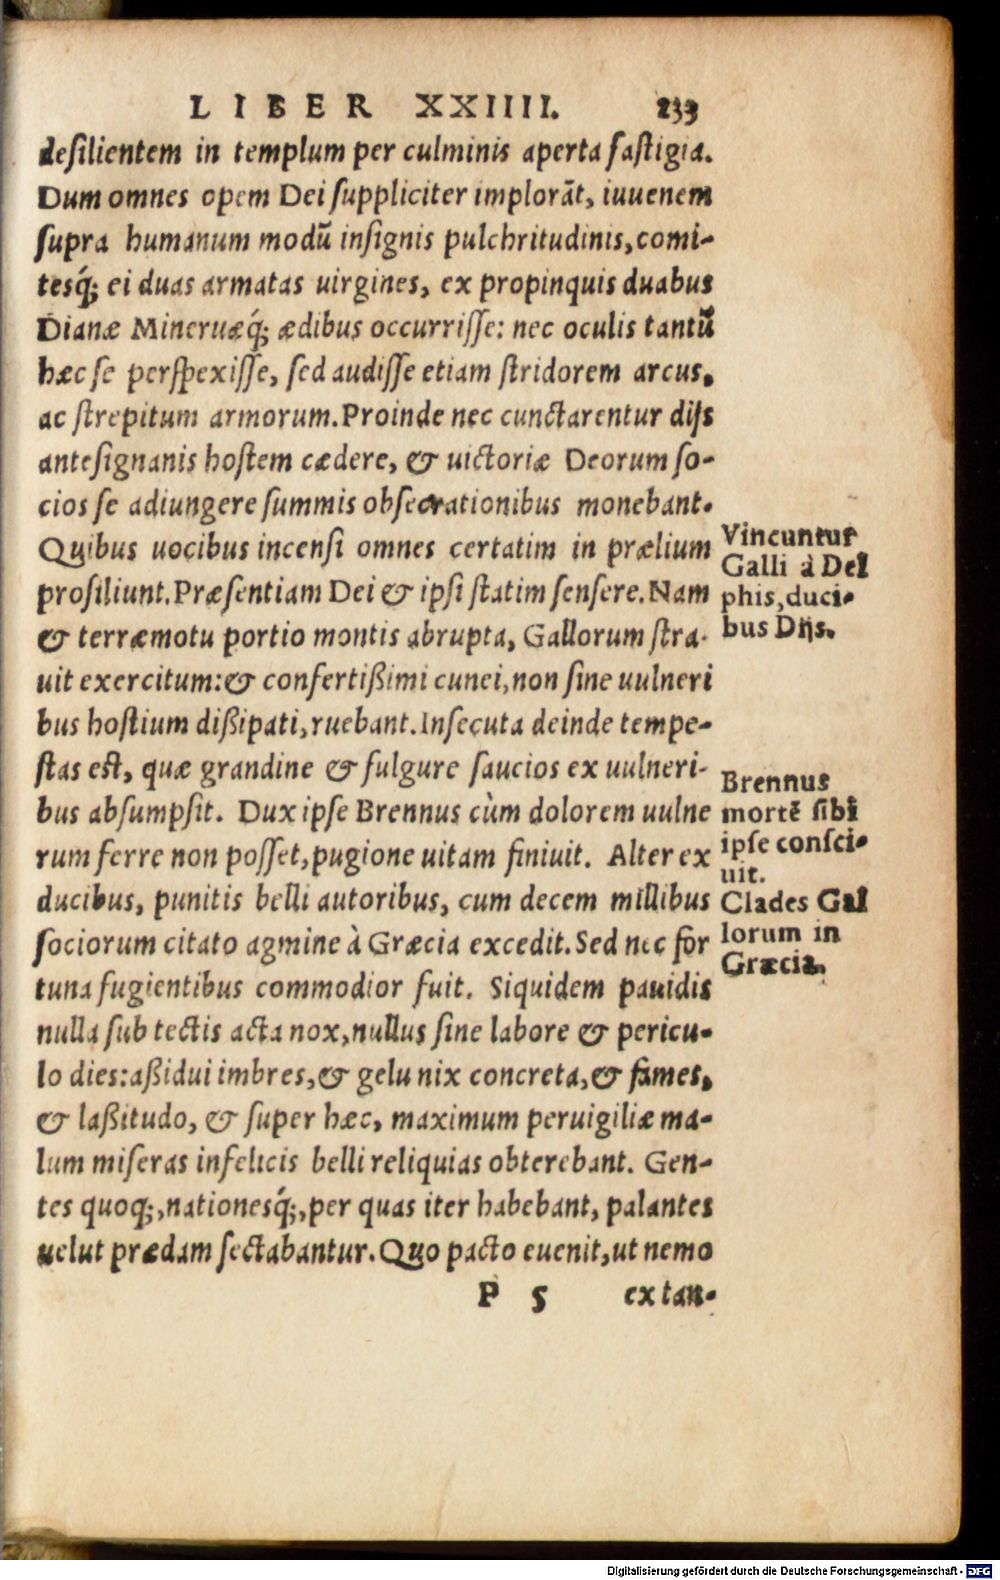 LIBER XXIIII. 233
desilientem in templum per culminis aperta fastigia.
Dum omnes opem Dei suppliciter implorãt, iuuenem
supra humanum modũ insignis pulchritudinis, comi-
tesq́; ei duas armatas uirgines, ex propinquis duabus
Dianæ Mineruæq́; ædibus occurrisse: nec oculis tantũ
hæc se perspexisse, sed audisse etiam stridorem arcus,
ac strepitum armorum. Proinde nec cunctarentur dijs
antesignanis hostem cædere, & uictoriæ Deorum so-
cios se adiungere summis obsecrationibus monebant.
Quibus uocibus incensi omnes certatim in prælium
prosiliunt. Præsentiam Dei & ipsi statim sensere. Nam
& terræmotu portio montis abrupta, Gallorum stra-
uit exercitum: & confertißimi cunei, non sine uulneri
bus hostium dißipati, ruebant. Insecuta deinde tempe-
stas est, quæ grandine & fulgure saucios ex uulneri-
bus absumpsit. Dux ipse Brennus cùm dolorem uulne
rum ferre non posset, pugione uitam finiuit. Alter ex
ducibus, punitis belli autoribus, cum decem millibus
sociorum citato agmine à Græcia excedit. Sed nec for
tuna fugientibus commodior fuit. Siquidem pauidis
nulla sub tectis acta nox, nullus sine labore & pericu-
lo dies: aßidui imbres, & gelu nix concreta, & fames,
& laßitudo, & super hæc, maximum peruigiliæ ma-
lum miseras infelicis belli reliquias obterebant. Gen-
tes quoq;, nationesq́;, per quas iter habebant, palantes
uelut prædam sectabantur. Quo pacto euenit, ut nemo
P 5 ex tan-
Vincuntur
Galli à Del
phis, duci-
bus Dijs.
Brennus
mortẽ sibi
ipse consci-
uit.
Clades Gal
lorum in
Græcia.
Digitalisierung gefördert durch die Deutsche Forschungsgemeinschaft - DFG